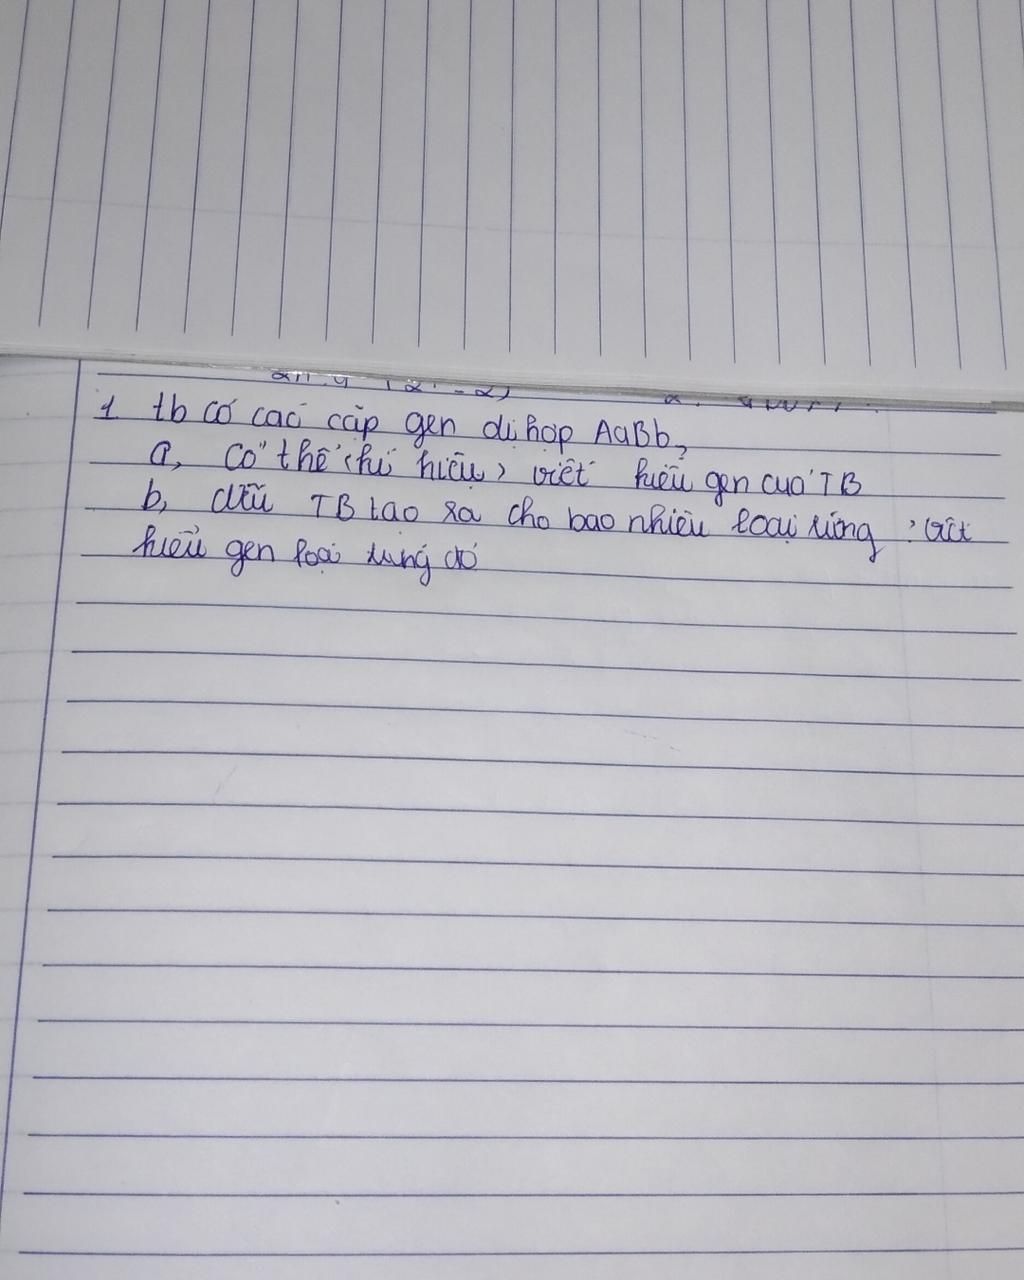 1 tb có các cặp gen dị hợp AaBb,
a, Có thể (kí hiệu) viết kiểu gen của TB
b, TB tạo ra cho bao nhiêu loại trứng : viết
kiểu gen loại trứng đó